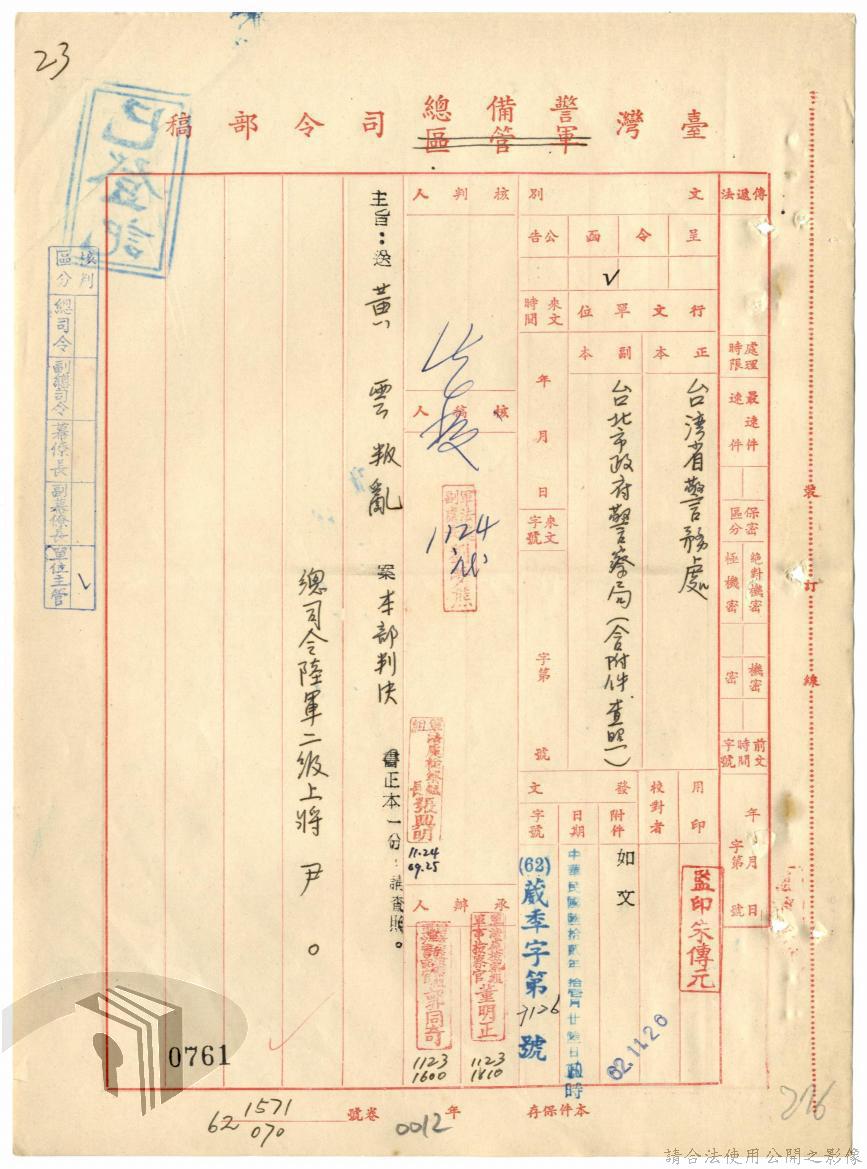 23
臺灣警備總司令部稿
軍管區
已登記
傳遞法
處理時限
最速件
速件
保密區分
絕對機密
極機密
機密
密
前文時間字號
年 月 日
字第 號
文別
呈
令
函
公告
✓
行文單位
正本
台湾省警務處
副本
台北市政府警察局(含附件查照)
來文時間
年 月 日
來文字號
字第 號
用印
監印宋傳元
校對者
發文
附件
如文
日期
中華民國陸拾貳年拾壹月廿陸日 時
62.11.26
字號
(62)蔵季字第7126號
核判人
核稿人
1124
軍法處檢察組組長張興明
11.24
09.25
承辦人
軍法處檢察組軍事檢察官董明正
1123
1410
1123
1600
主旨:送黃雲叛亂案本部判決書正本一份,請查照。
總司令陸軍二級上將 尹 。
核判區分
總司令
副總司令
幕僚長
副幕僚長
單位主管
✓
裝訂線
0761
62 1571/070 卷號
0012 年
本件保存
276
請合法使用公開之影像